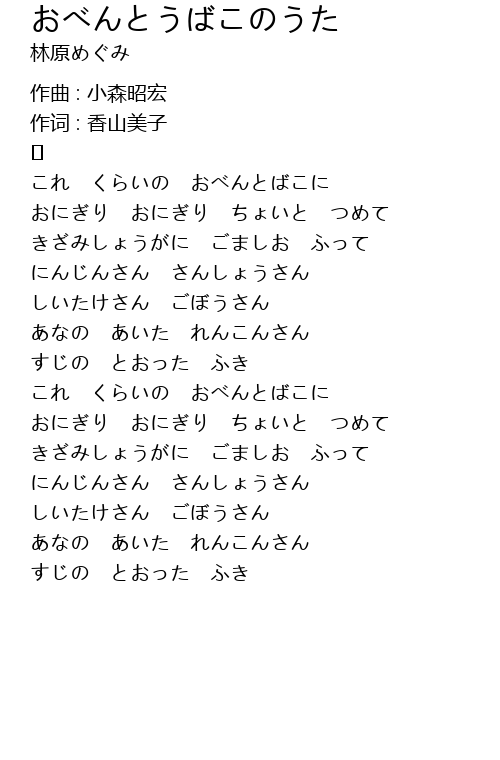 おべんとうばこのうた
林原めぐみ
作曲 : 小森昭宏
作词 : 香山美子
[]
これ　くらいの　おべんとばこに
おにぎり　おにぎり　ちょいと　つめて
きざみしょうがに　ごましお　ふって
にんじんさん　さんしょうさん
しいたけさん　ごぼうさん
あなの　あいた　れんこんさん
すじの　とおった　ふき
これ　くらいの　おべんとばこに
おにぎり　おにぎり　ちょいと　つめて
きざみしょうがに　ごましお　ふって
にんじんさん　さんしょうさん
しいたけさん　ごぼうさん
あなの　あいた　れんこんさん
すじの　とおった　ふき